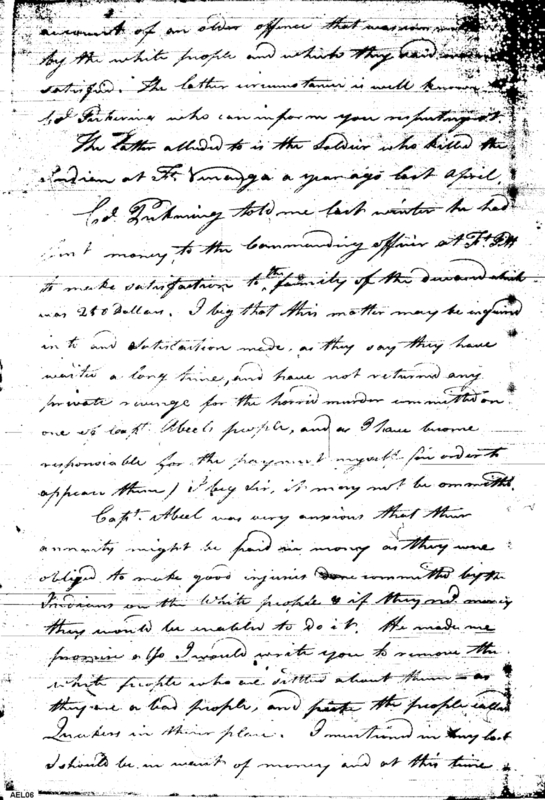 account of an older offence that was
by the white people and which they said
satisfied. The latter circumstance is well known
Col Pickering who can inform you respecting it
The latter alluded to is the Soldier who killed the
Indian at Ft. Venango a year ago last April,
Col. Pickering told me last winter he had
sent money to the Commanding officer at Ft. Pitt
to make satisfaction to the family of the deceased which
was Dollars. I beg that this matter may be enquired
in to and satisfaction made, as they say they have
waited a long time, and have not returned any
private revenge for the horrid murder committed on
one of Capt. Abeels people, and as I have become
responsible for the payment myself (in order to
appease them) I beg Sir, it may not be ommitted.
Capt. Abeel was very anxious that their
annuity might be paid in money as they were
obliged to make good injuries committed by the
Indians on the White people & if they money
they would be enabled to do it. He made me
promise also I would write you to remove the
white people who are settled about them as
they are a bad people, and the people called
Quakers in their place. I mentioned in my last
I should be in want of money and at this time
AEL06